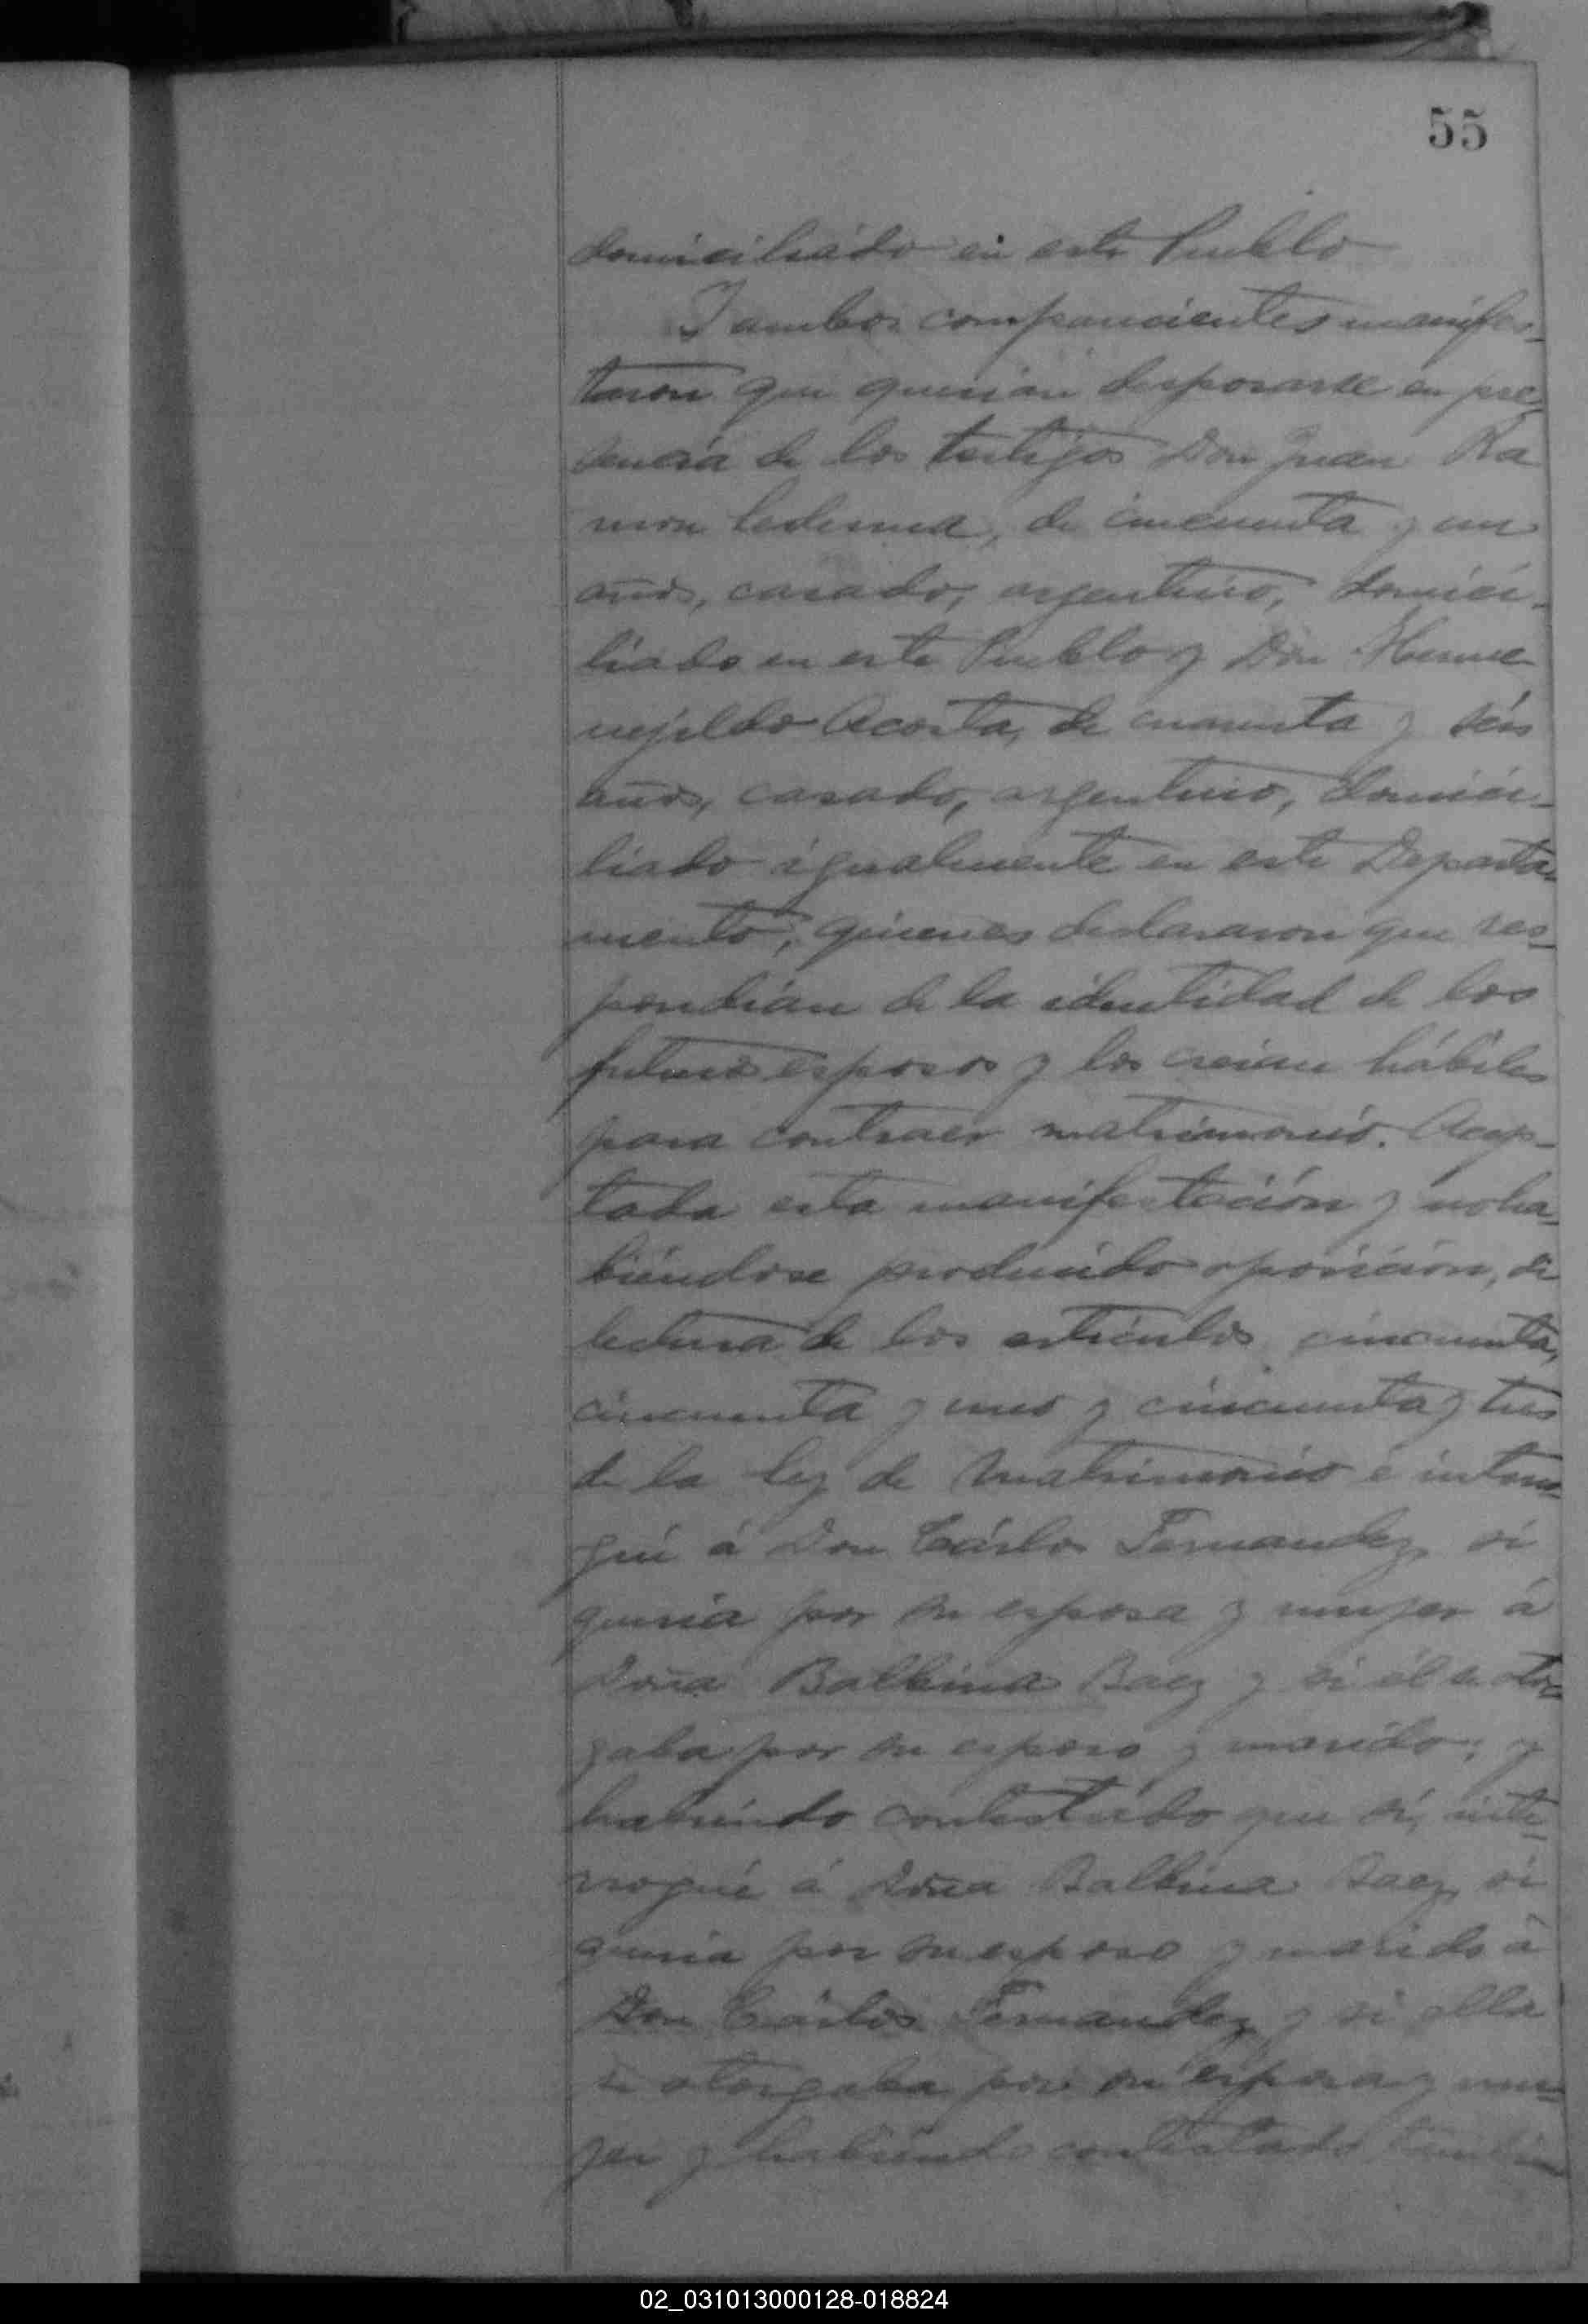 55
domiciliado en este Pueblo
I ambos comparecientes manifes-
taron que querian desposarse en pre-
sencia de los testigos Don Juan Ra
mon Ledesma, de cincuenta y un
años, casado, argentino, domici-
liado en este Pueblo y Don Herme-
nejildo Acosta, de cuarenta y seis
años, casado, argentino, domici-
liado igualmente en este Departa-
mento, quienes declararon que res-
pondian de la identidad de los
futuros esposos y los creian hábiles
para contraer matrimonio. Acep-
tada esta manifestación y no ha-
biéndose producido oposición, di
lectura de los artículos cincuenta,
cincuenta y uno y cincuenta y tres
de la ley de Matrimonio é interro-
gué á Don Cárlos Fernandez si
queria por su esposa y mujer á
Doña Balbina Baez y si él se otor-
gaba por su esposo y marido; y
habiendo contestado que sí, inte-
rrogué á Doña Balbina Baez si
queria por su esposo y marido á
Don Cárlos Fernandez y si ella
se otorgaba por su esposa y mu-
jer y habiendo contestado tambien
02_031013000128-018824